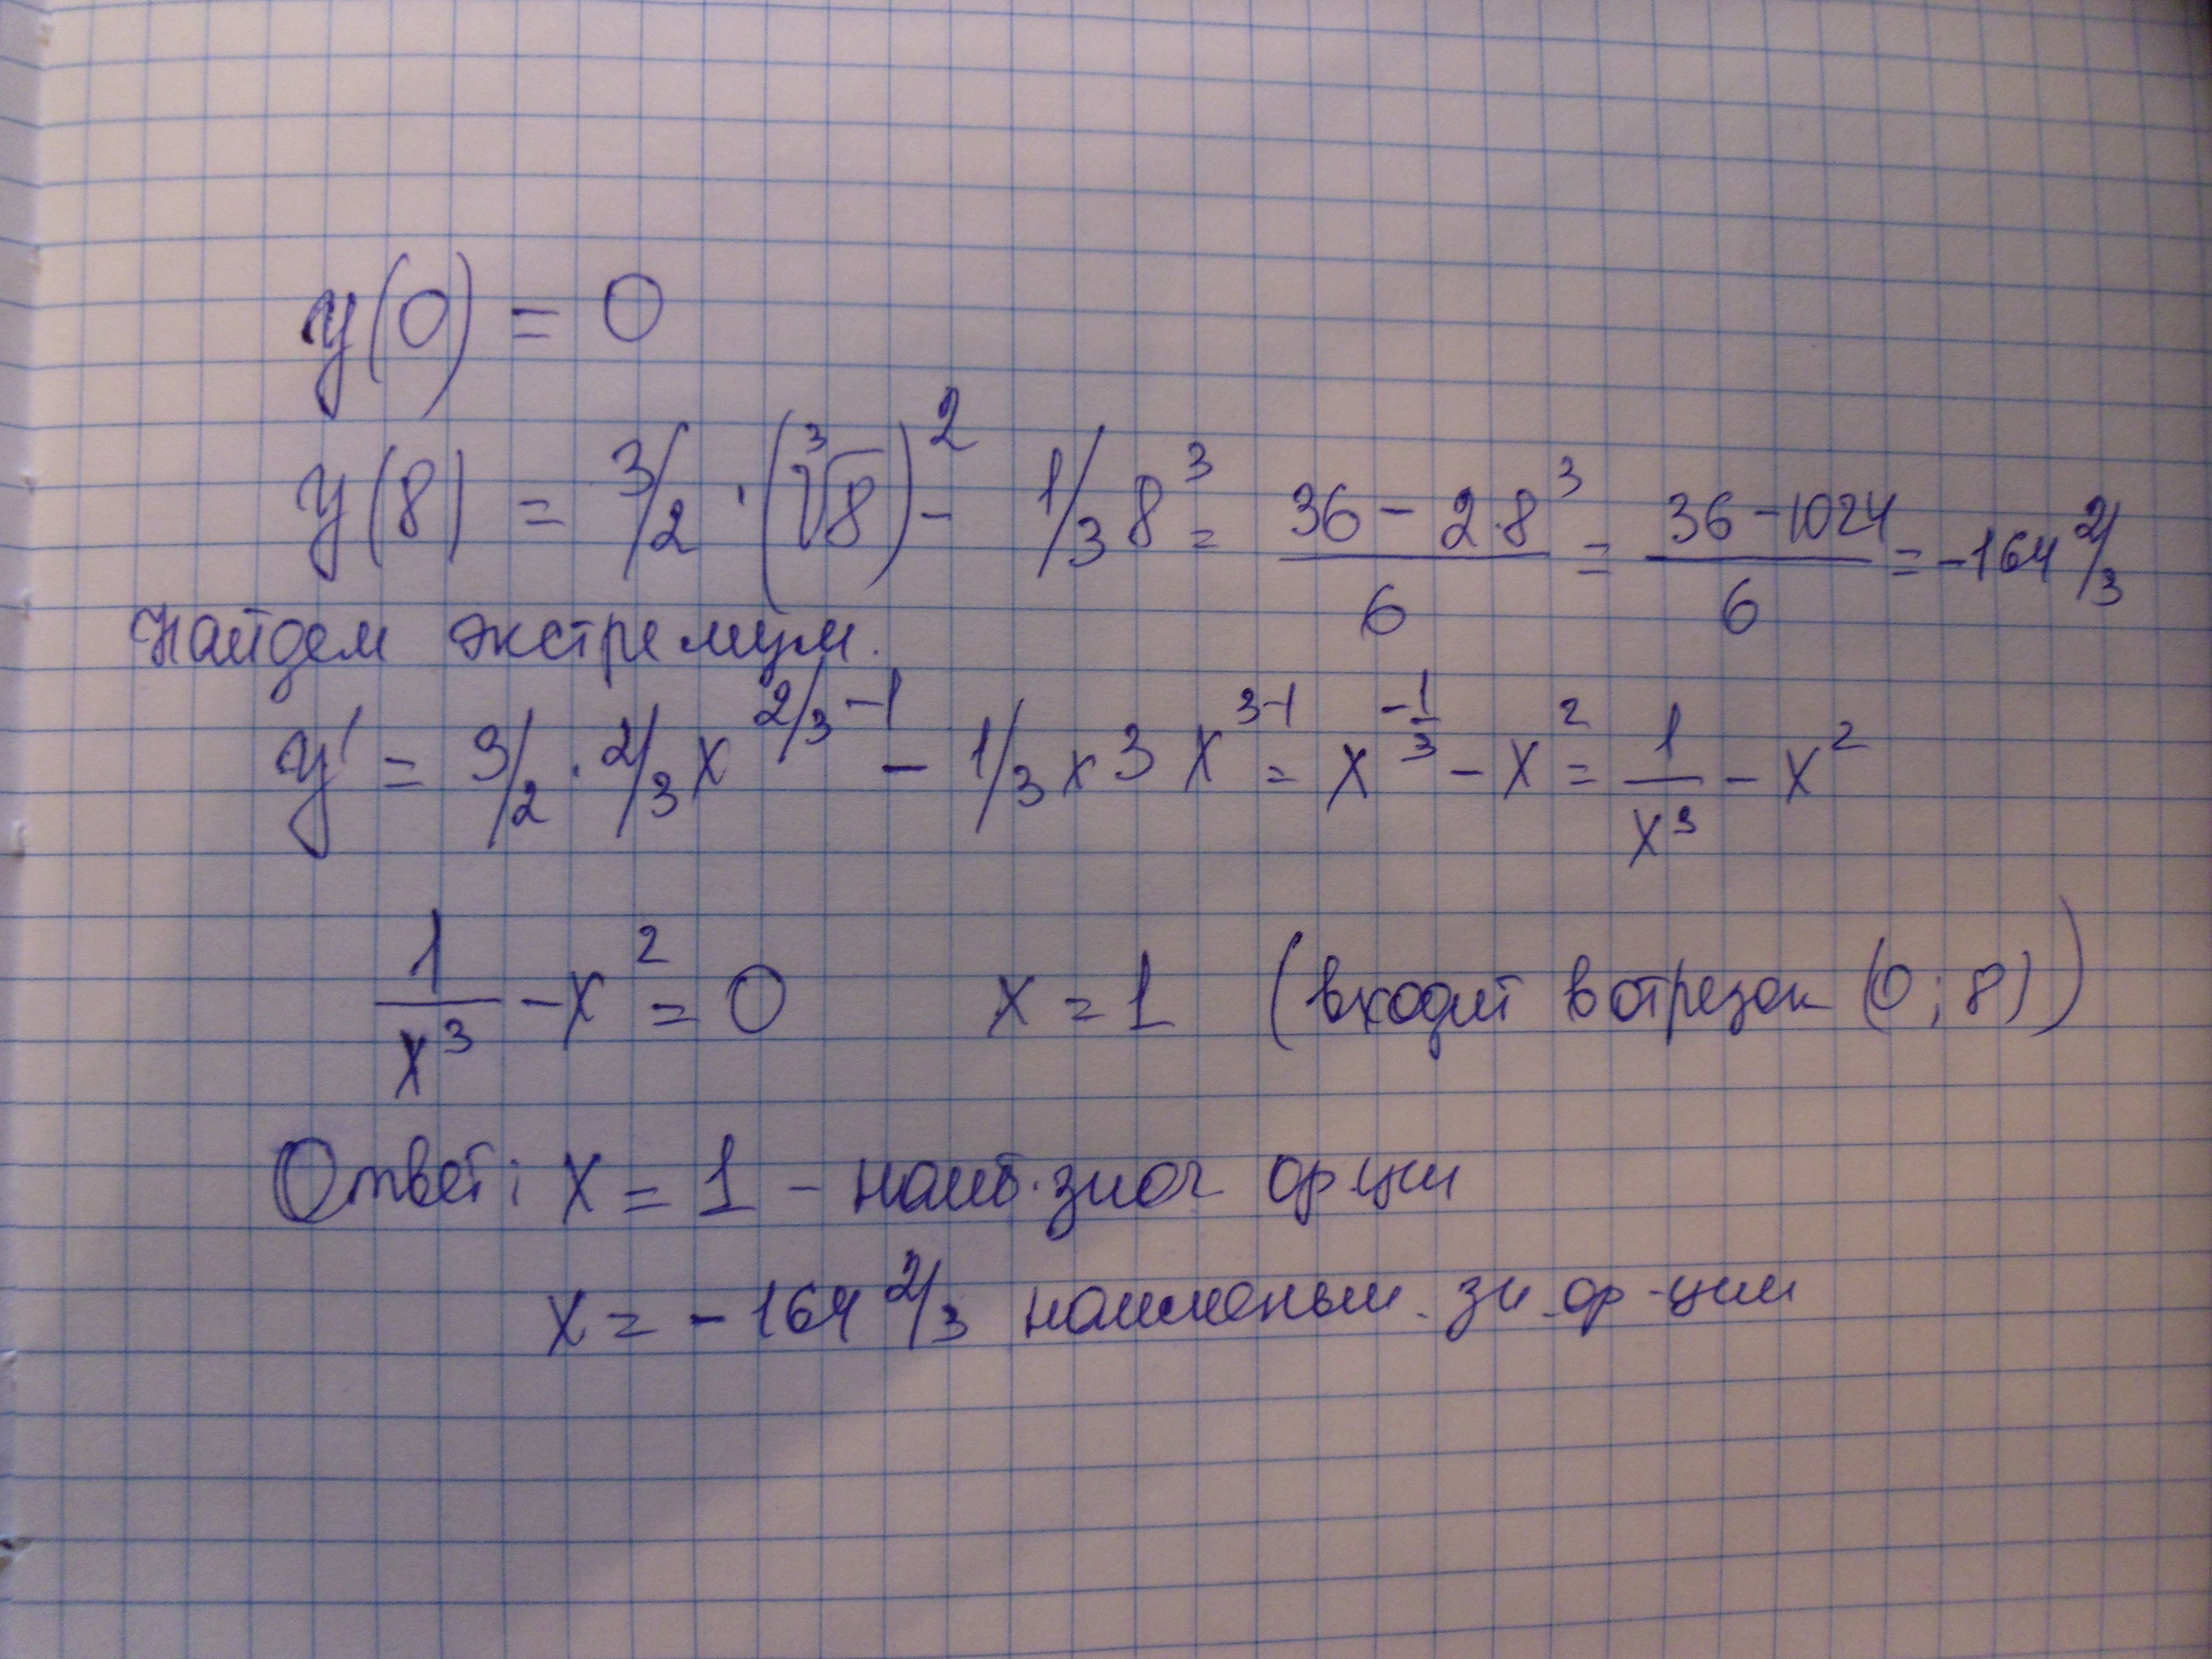 y(0) = 0
y(8) = 3/2 · (∛8)² - 1/3 8³ = (36 - 2·8³)/6 = (36 - 1024)/6 = -164 2/3
Найдем экстремум.
y' = 3/2 · 2/3 x^(2/3 - 1) - 1/3 x 3 x^(3-1) = x^(-1/3) - x² = 1/x³ - x²
1/x³ - x² = 0 x = 1 (входит в отрезок (0; 8))
Ответ: x = 1 - наиб. знач ф-ции
x = - 164 2/3 наименьш. зн. ф-ции